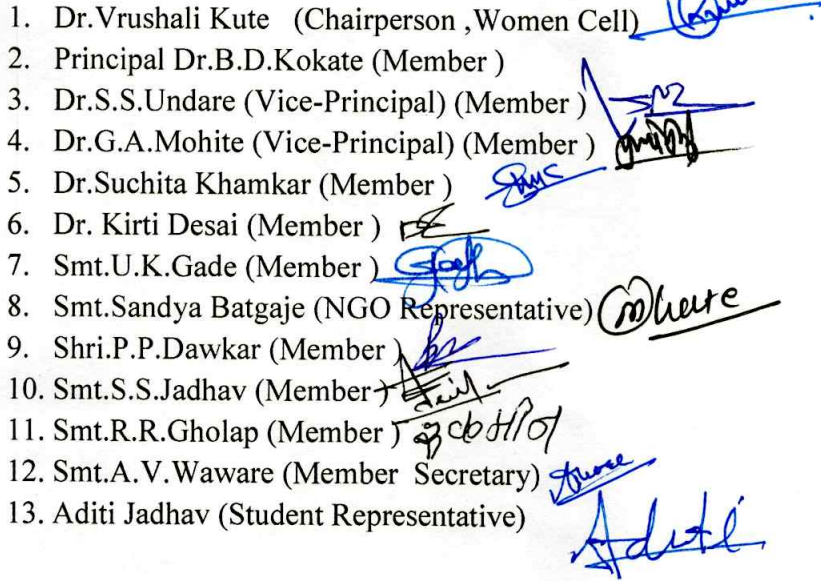 1. Dr.Vrushali Kute (Chairperson ,Women Cell)
2. Principal Dr.B.D.Kokate (Member )
3. Dr.S.S.Undare (Vice-Principal) (Member )
4. Dr.G.A.Mohite (Vice-Principal) (Member )
5. Dr.Suchita Khamkar (Member )
6. Dr. Kirti Desai (Member )
7. Smt.U.K.Gade (Member )
8. Smt.Sandya Batgaje (NGO Representative)
9. Shri.P.P.Dawkar (Member )
10. Smt.S.S.Jadhav (Member )
11. Smt.R.R.Gholap (Member )
12. Smt.A.V.Waware (Member Secretary)
13. Aditi Jadhav (Student Representative)
Aditi